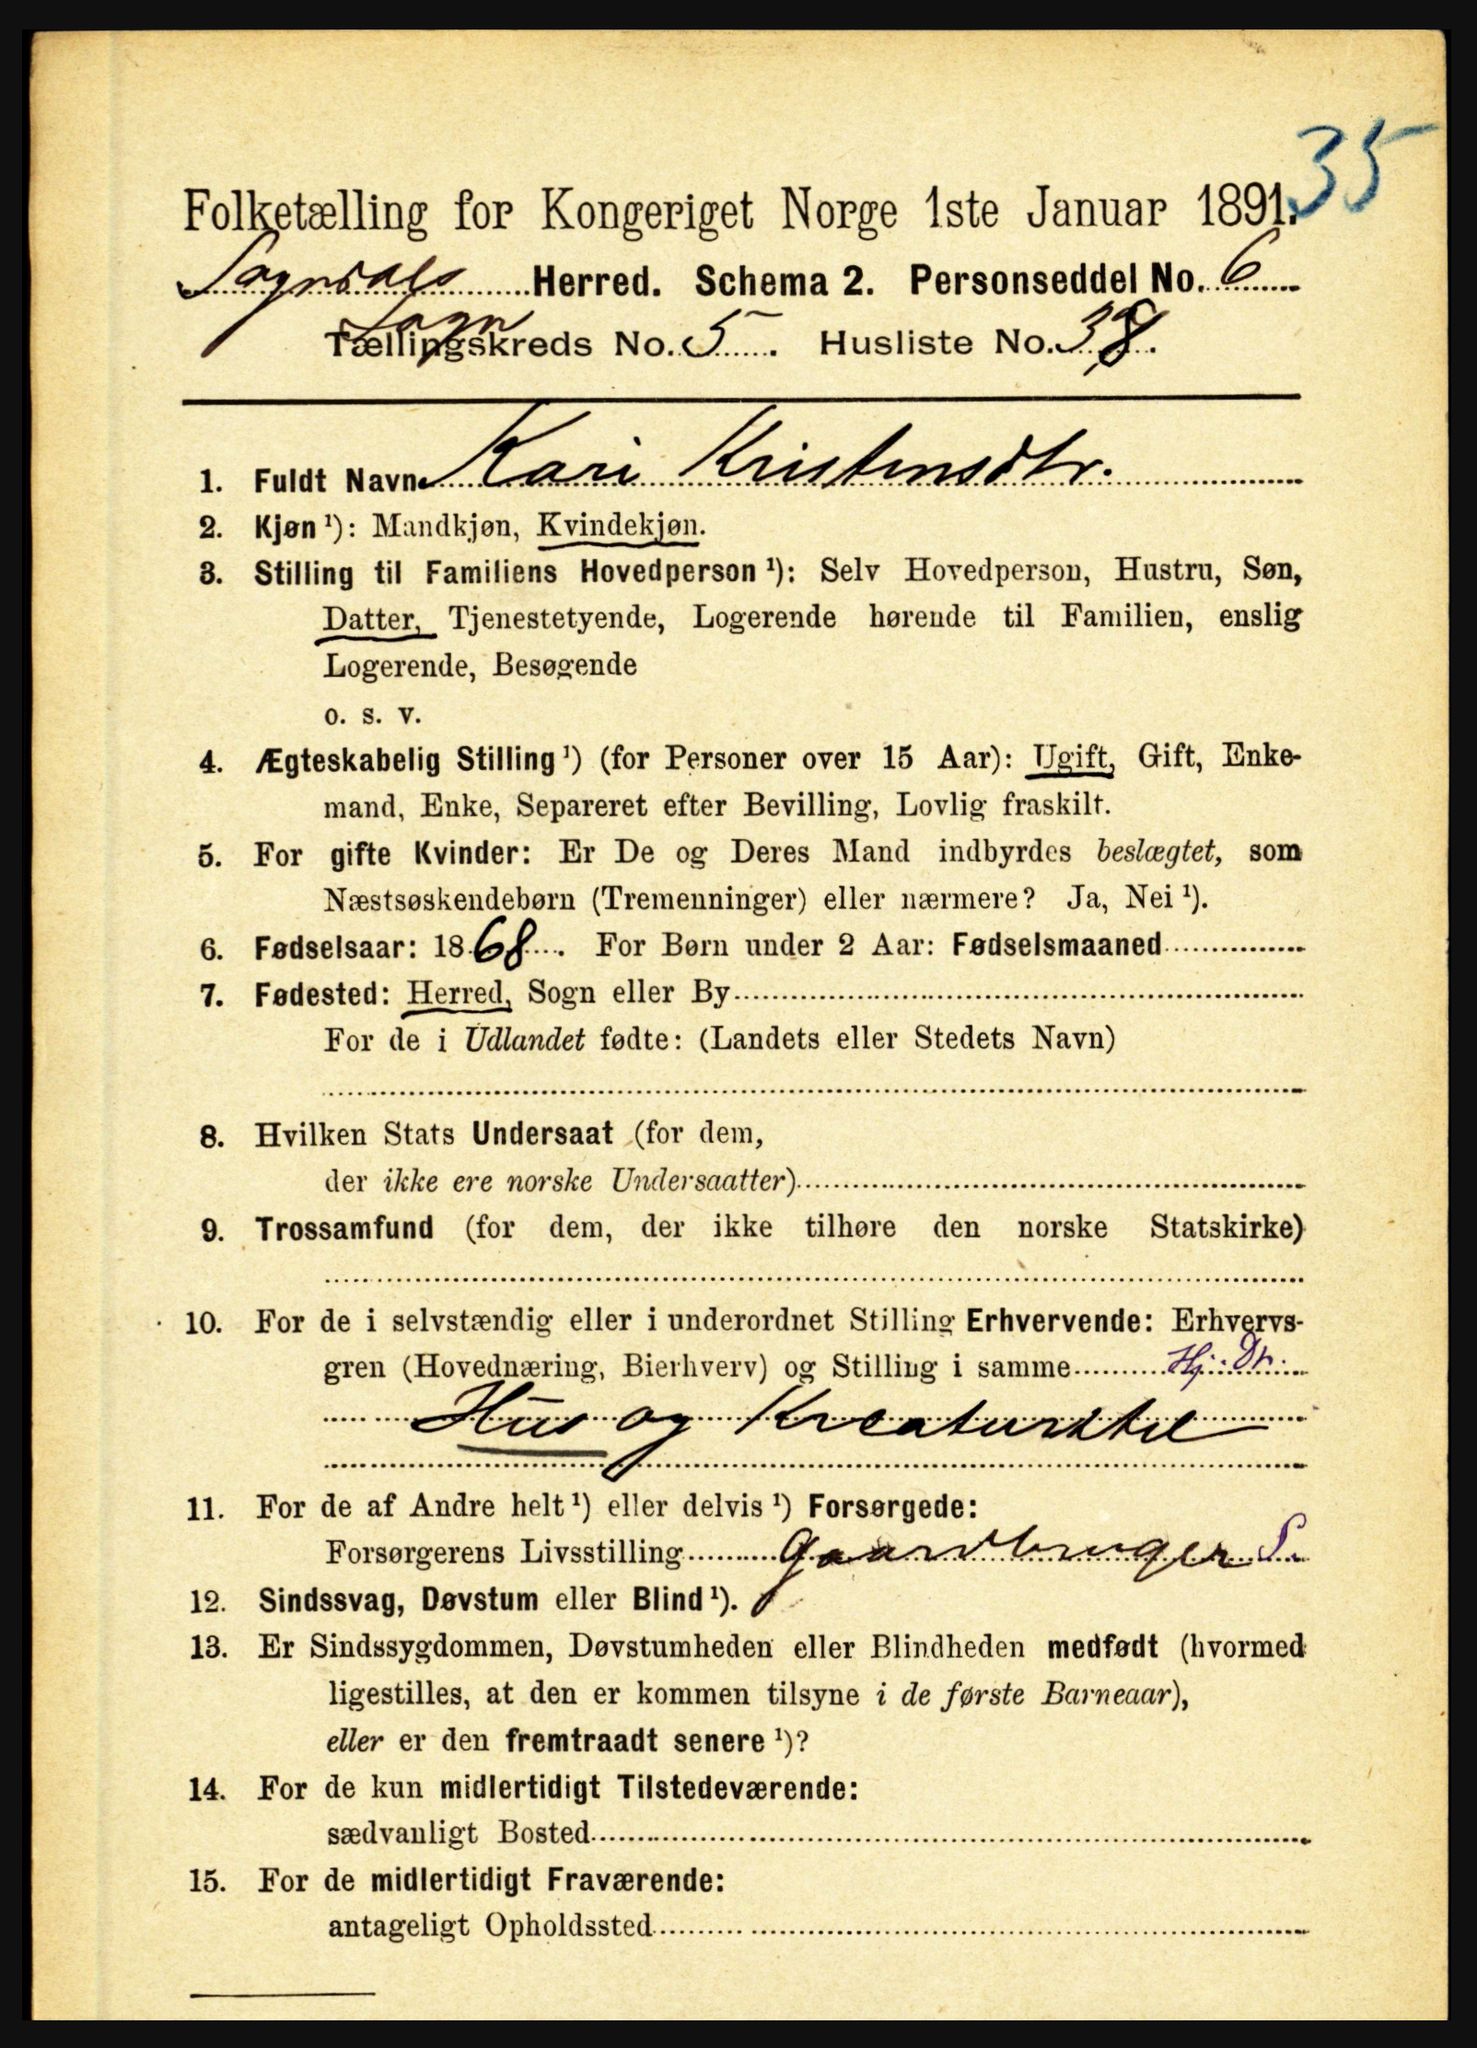 35
Folketælling for Kongeriget Norge 1ste Januar 1891.
Sogndals Herred. Schema 2. Personseddel No. 6
Sogn
Tællingskreds No. 5. Husliste No. 38.
1. Fuldt Navn Kari Kristensdtr.
2. Kjøn ¹): Mandkjøn, Kvindekjøn.
3. Stilling til Familiens Hovedperson ¹): Selv Hovedperson, Hustru, Søn,
Datter, Tjenestetyende, Logerende hørende til Familien, enslig
Logerende, Besøgende
o. s. v.
4. Ægteskabelig Stilling ¹) (for Personer over 15 Aar): Ugift, Gift, Enke-
mand, Enke, Separeret efter Bevilling, Lovlig fraskilt.
5. For gifte Kvinder: Er De og Deres Mand indbyrdes beslægtet, som
Næstsøskendebørn (Tremenninger) eller nærmere? Ja, Nei ¹).
6. Fødselsaar: 1868. For Børn under 2 Aar: Fødselsmaaned
7. Fødested: Herred, Sogn eller By
For de i Udlandet fødte: (Landets eller Stedets Navn)
8. Hvilken Stats Undersaat (for dem,
der ikke ere norske Undersaatter)
9. Trossamfund (for dem, der ikke tilhøre den norske Statskirke)
10. For de i selvstændig eller i underordnet Stilling Erhvervende: Erhvervs-
gren (Hovednæring, Bierhverv) og Stilling i samme Hj. Dtr.
Hus og Kreaturstel
11. For de af Andre helt ¹) eller delvis ¹) Forsørgede:
Forsørgerens Livsstilling Gaardbruger S.
12. Sindssvag, Døvstum eller Blind ¹).
13. Er Sindssygdommen, Døvstumheden eller Blindheden medfødt (hvormed
ligestilles, at den er kommen tilsyne i de første Barneaar),
eller er den fremtraadt senere ¹)?
14. For de kun midlertidigt Tilstedeværende:
sædvanligt Bosted
15. For de midlertidigt Fraværende:
antageligt Opholdssted